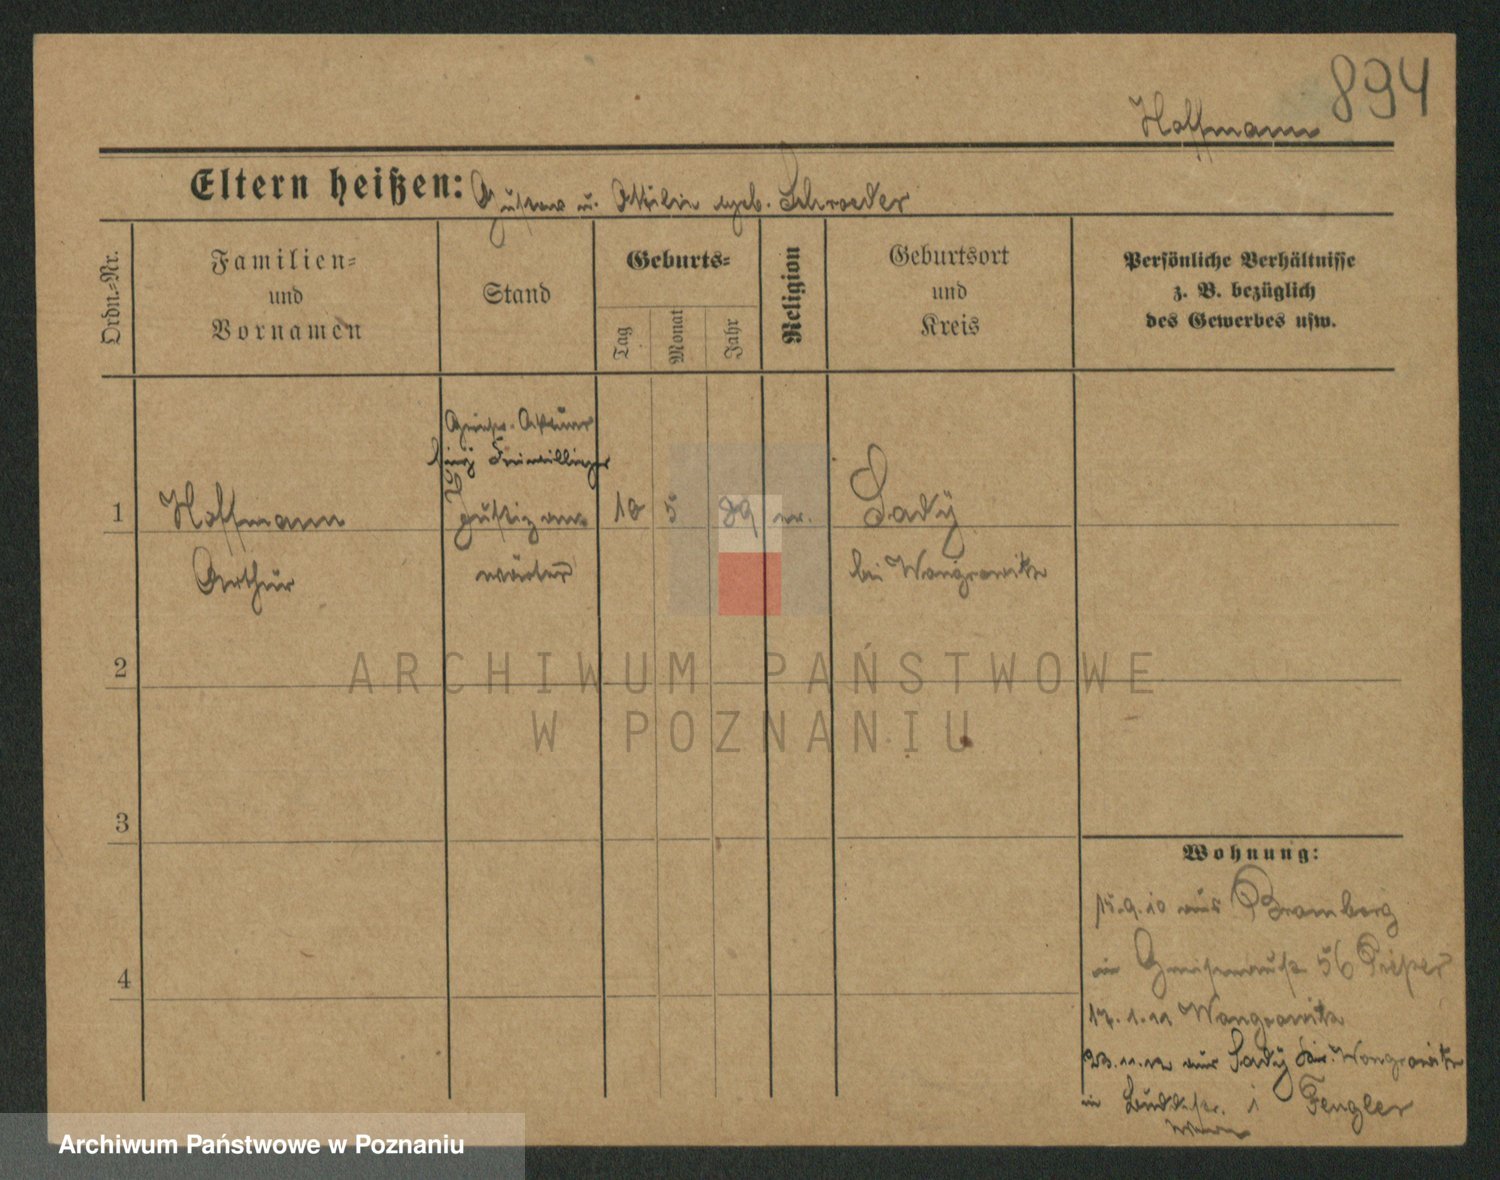 894
Hoffmann
Eltern heißen: Gustav u. Ottilie geb. Schroeder
Ordn.-Nr.
Familien-
und
Vornamen
Stand
Geburts-
Tag
Monat
Jahr
Religion
Geburtsort
und
Kreis
Persönliche Verhältnisse
z. B. bezüglich
des Gewerbes usw.
Aktuar
Freiwilliger
1 Hoffmann Justizan- 18 5 89 ev. Sady
Arthur wärter bei Wongrowitz
2
3
4
Wohnung:
15.9.10 aus Bromberg
in Gneisenaustr 56
17.1.11 Wongrowitz
23.11.12 aus Sady Wongrowitz
in i Fengler
ARCHIWUM PAŃSTWOWE
W POZNANIU
Archiwum Państwowe w Poznaniu